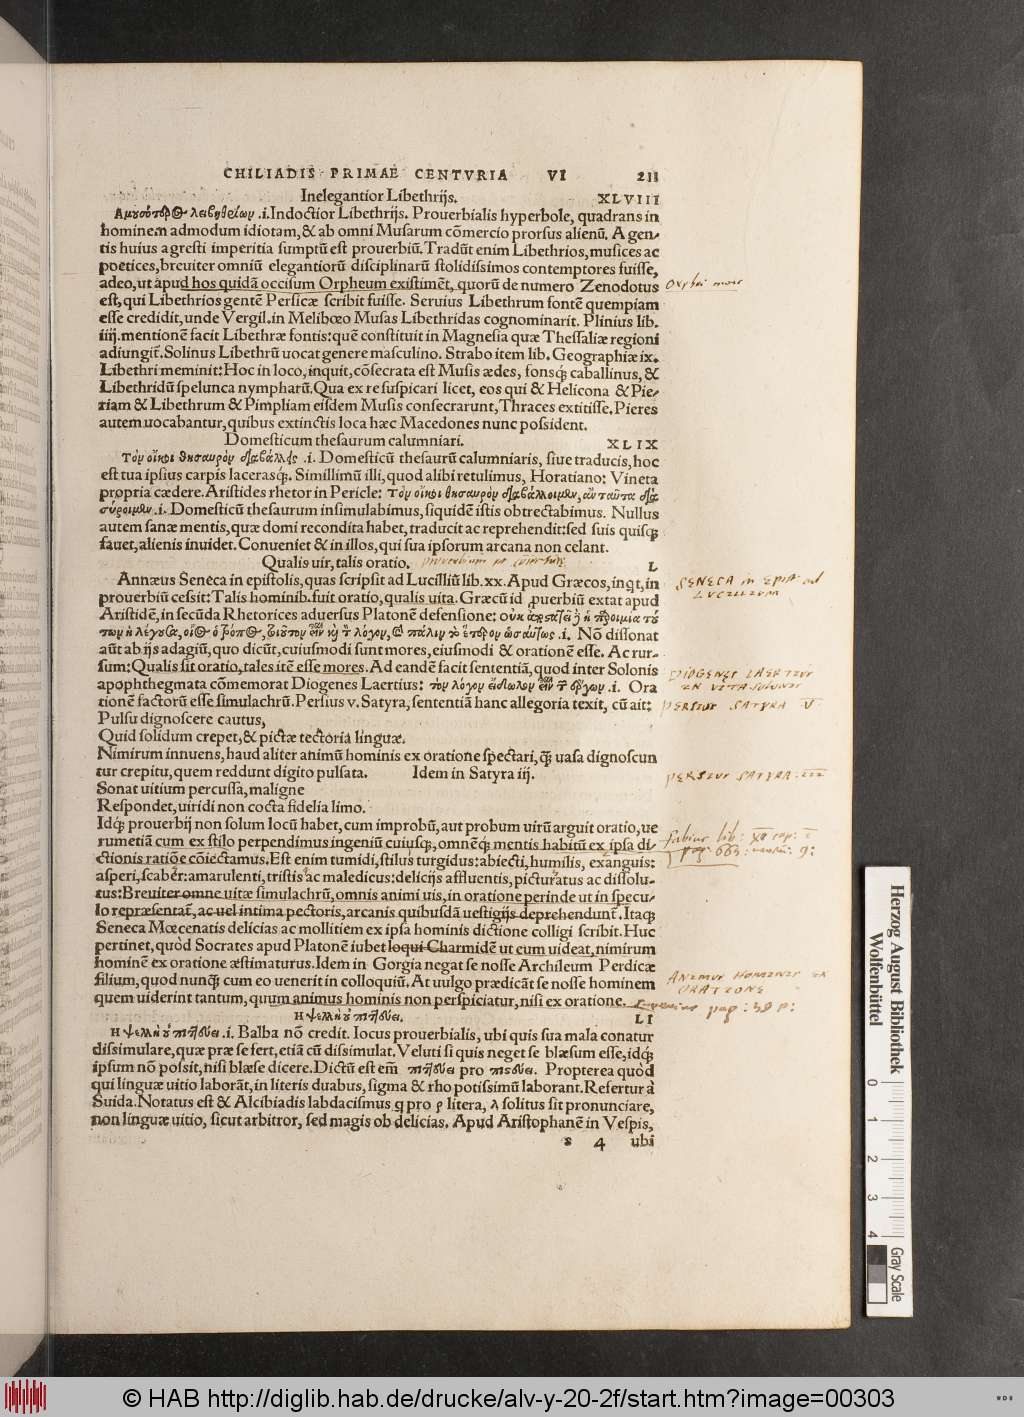 CHILIADIS PRIMAE CENTVRIA VI 211
Inelegantior Libethrijs. XLVIII
Αμουσότερος λειβηθρίων .i. Indoctior Libethrijs. Prouerbialis hyperbole, quadrans in
hominem admodum idiotam, & ab omni Musarum cõmercio prorsus alienũ. A gen-
tis huius agresti imperitia sumptũ est prouerbiũ. Tradũt enim Libethrios, musices ac
poetices, breuiter omniũ elegantiorũ disciplinarũ stolidissimos contemptores fuisse,
adeo, ut apud hos quidã occisum Orpheum existimẽt, quorũ de numero Zenodotus
est, qui Libethrios gentẽ Persicæ scribit fuisse. Seruius Libethrum fontẽ quempiam
esse credidit, unde Vergil. in Melibœo Musas Libethridas cognominarit. Plinius lib.
iiij. mentionẽ facit Libethræ fontis: quẽ constituit in Magnesia quæ Thessaliæ regioni
adiungit̃. Solinus Libethrũ uocat genere masculino. Strabo item lib. Geographiæ ix.
Libethri meminit: Hoc in loco, inquit, cõsecrata est Musis ædes, fonsq; caballinus, &
Libethridũ spelunca nympharũ. Qua ex re suspicari licet, eos qui & Helicona & Pie-
riam & Libethrum & Pimpliam eisdem Musis consecrarunt, Thraces extitisse. Pieres
autem uocabantur, quibus extinctis loca hæc Macedones nunc possident.
Domesticum thesaurum calumniari. XLIX
Τὸν οἴκοι θησαυρὸν διαβάλλεις .i. Domesticũ thesaurũ calumniaris, siue traducis, hoc
est tua ipsius carpis lacerasq;. Simillimũ illi, quod alibi retulimus, Horatiano: Vineta
propria cædere. Aristides rhetor in Pericle: Τὸν οἴκοι θησαυρὸν διαβάλλοιμεν, ἂν ταῦτα δια
σύροιμεν .i. Domesticũ thesaurum insimulabimus, siquidẽ istis obtrectabimus. Nullus
autem sanæ mentis, quæ domi recondita habet, traducit ac reprehendit: sed suis quisq;
fauet, alienis inuidet. Conueniet & in illos, qui sua ipsorum arcana non celant.
Qualis uir, talis oratio. L
Annæus Seneca in epistolis, quas scripsit ad Lucilliũ lib. xx. Apud Græcos, inqt, in
prouerbiũ cessit: Talis hominib. fuit oratio, qualis uita. Græcũ id ꝓuerbiũ extat apud
Aristidẽ, in secũda Rhetorices aduersus Platonẽ defensione: οὐκ ἀρέσκει ἡ παροιμία τού
των ἡ λέγουσα, οἷος ὁ τρόπος, τοιοῦτον εἶναι καὶ τὸν λόγον, καὶ πάλιν τὸ ἕτερον ὡσαύτως .i. Nõ dissonat
aũt ab ijs adagiũ, quo dicũt, cuiusmodi sunt mores, eiusmodi & orationẽ esse. Ac rur-
sum: Qualis sit oratio, tales itẽ esse mores. Ad eandẽ facit sententiã, quod inter Solonis
apophthegmata cõmemorat Diogenes Laertius: τὸν λόγον εἴδωλον εἶναι τῶν ἔργων .i. Ora
tionẽ factorũ esse simulachrũ. Persius v. Satyra, sententiã hanc allegoria texit, cũ ait:
Pulsu dignoscere cautus,
Quid solidum crepet, & pictæ tectoria linguæ.
Nimirum innuens, haud aliter animũ hominis ex oratione spectari, q̃ uasa dignoscun
tur crepitu, quem reddunt digito pulsata. Idem in Satyra iij.
Sonat uitium percussa, maligne
Respondet, uiridi non cocta fidelia limo.
Idq; prouerbij non solum locũ habet, cum improbũ, aut probum uirũ arguit oratio, ue
rumetiã cum ex stilo perpendimus ingeniũ cuiusq;, omnẽq; mentis habitũ ex ipsa di-
ctionis ratiõe cõiectamus. Est enim tumidi, stilus turgidus: abiecti, humilis, exanguis:
asperi, scaber: amarulenti, tristis ac maledicus: delicijs affluentis, picturatus ac dissolu-
tus: Breuiter omne uitæ simulachrũ, omnis animi uis, in oratione perinde ut in specu-
lo repræsentat̃, ac uel intima pectoris, arcanis quibusdã uestigijs deprehendunt̃. Itaq;
Seneca Mœcenatis delicias ac mollitiem ex ipsa hominis dictione colligi scribit. Huc
pertinet, quòd Socrates apud Platonẽ iubet loqui Charmidẽ ut eum uideat, nimirum
hominẽ ex oratione æstimaturus. Idem in Gorgia negat se nosse Archileum Perdicæ
filium, quod nunq̃ cum eo uenerit in colloquiũ. At uulgo prædicãt se nosse hominem
quem uiderint tantum, quum animus hominis non perspiciatur, nisi ex oratione.
Η ψελλὴ οὐ πιτεύει. LI
Η ψελλὴ οὐ πιτεύει .i. Balba nõ credit. Iocus prouerbialis, ubi quis sua mala conatur
dissimulare, quæ præ se fert, etiã cũ dissimulat. Veluti si quis neget se blæsum esse, idq;
ipsum nõ possit, nisi blæse dicere. Dictũ est em̃ πιτεύει pro πιστεύει. Propterea quòd
qui linguæ uitio laborãt, in literis duabus, sigma & rho potissimũ laborant. Refertur à
Suida. Notatus est & Alcibiadis labdacismus q pro ρ litera, λ solitus sit pronunciare,
non linguæ uitio, sicut arbitror, sed magis ob delicias. Apud Aristophanẽ in Vespis,
s 4 ubi
Orphei mors
SENECA in Epist. ad
LUCILLIUM
DIOGENES LAERTIUS
IN VITA SOLONIS
PERSIUS SATYRA V
PERSIUS SATYRA III
Fabius lib: XII cap: 2
pag: 663: 9:
ANIMUS HOMINIS EX
ORATIONE
pag: 38 p:
Herzog August Bibliothek
Wolfenbüttel
0 1 2 3 4
Gray Scale
© HAB http://diglib.hab.de/drucke/alv-y-20-2f/start.htm?image=00303